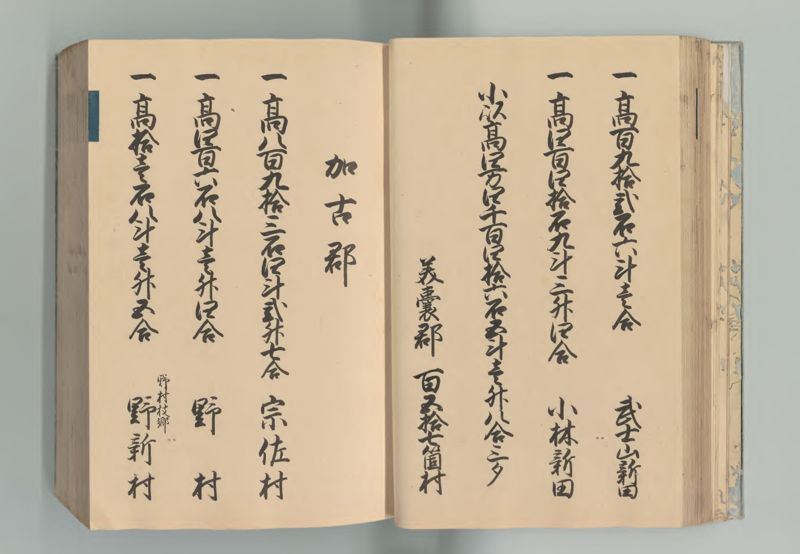 一 高百九拾弐石六斗壱合 武士山新田
一 高四百四拾石九斗三升四合 小林新田
小以高四万四千百四拾六石五斗壱升八合三夕
美嚢郡 百五拾七箇村
加古郡
一 高八百九拾三石四斗弐升七合 宗佐村
一 高四百六石八斗壱升四合 野村
野村枝郷
一 高拾壱石八斗壱升五合 野新村